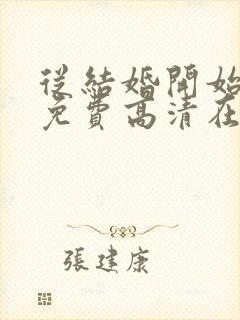 從結婚開始
免費高清在
張建康